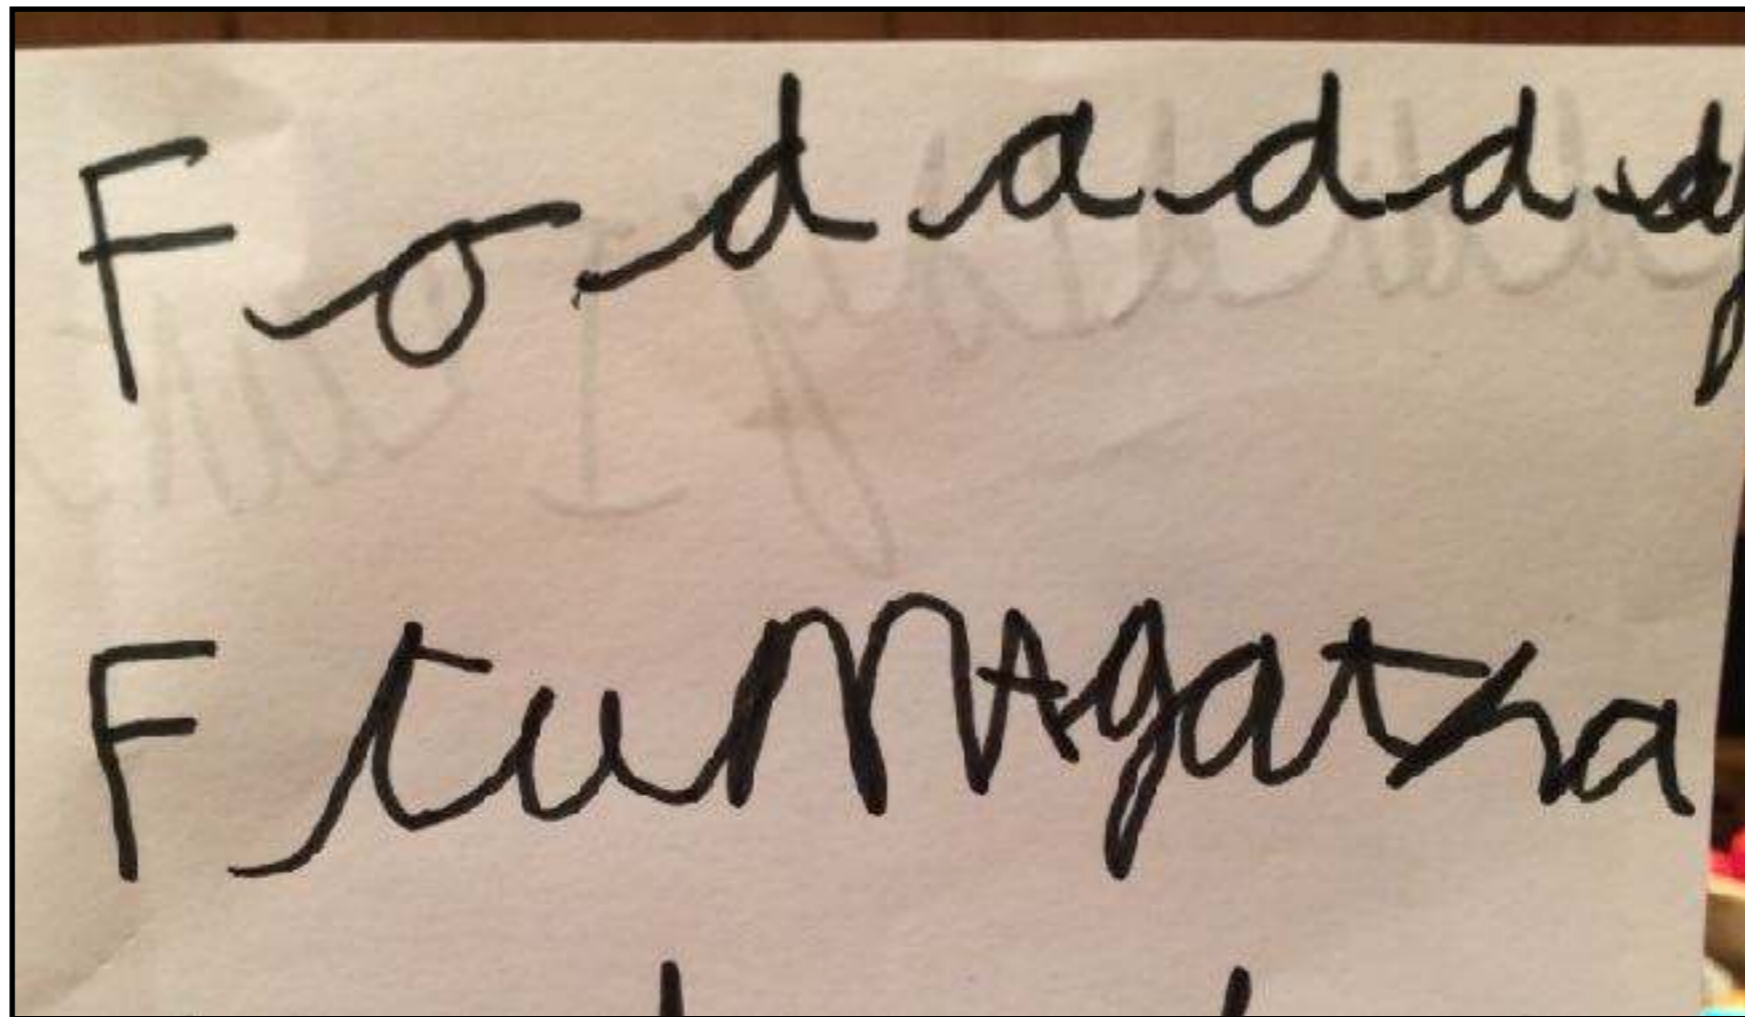 Fo daddy
F tum Agatha